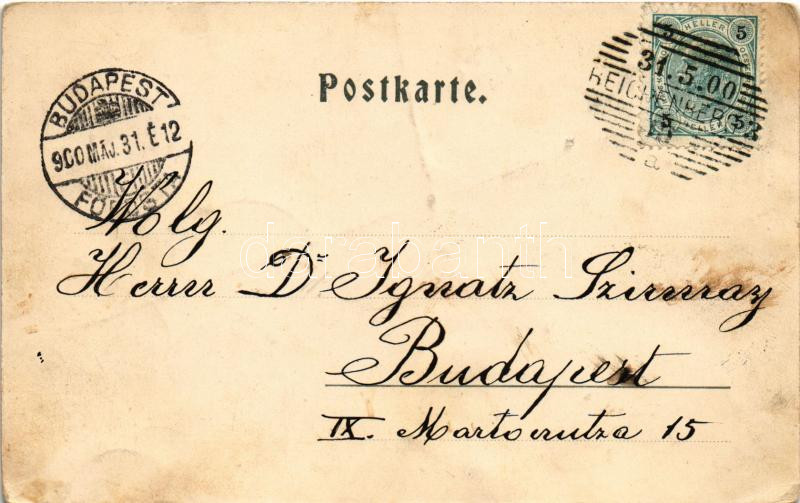 Postkarte.
BUDAPEST
900 MÁJ. 31. É 12
HELLER
5
31.5.00
REICHENBERG
5 5
a
Wolg.
Herrn Dr Ignatz Szirmay
darabanth
Budapest
IX. Martocrutza 15